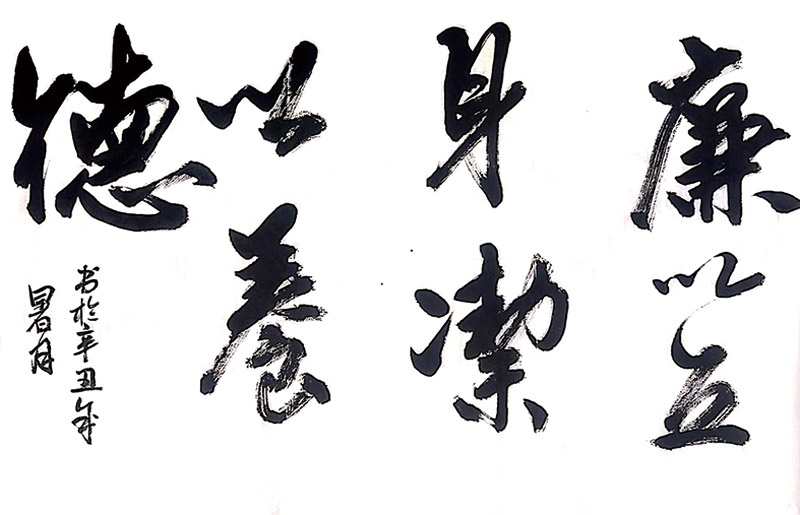 廉以立
身潔
以養
德
书於辛丑年
暑月